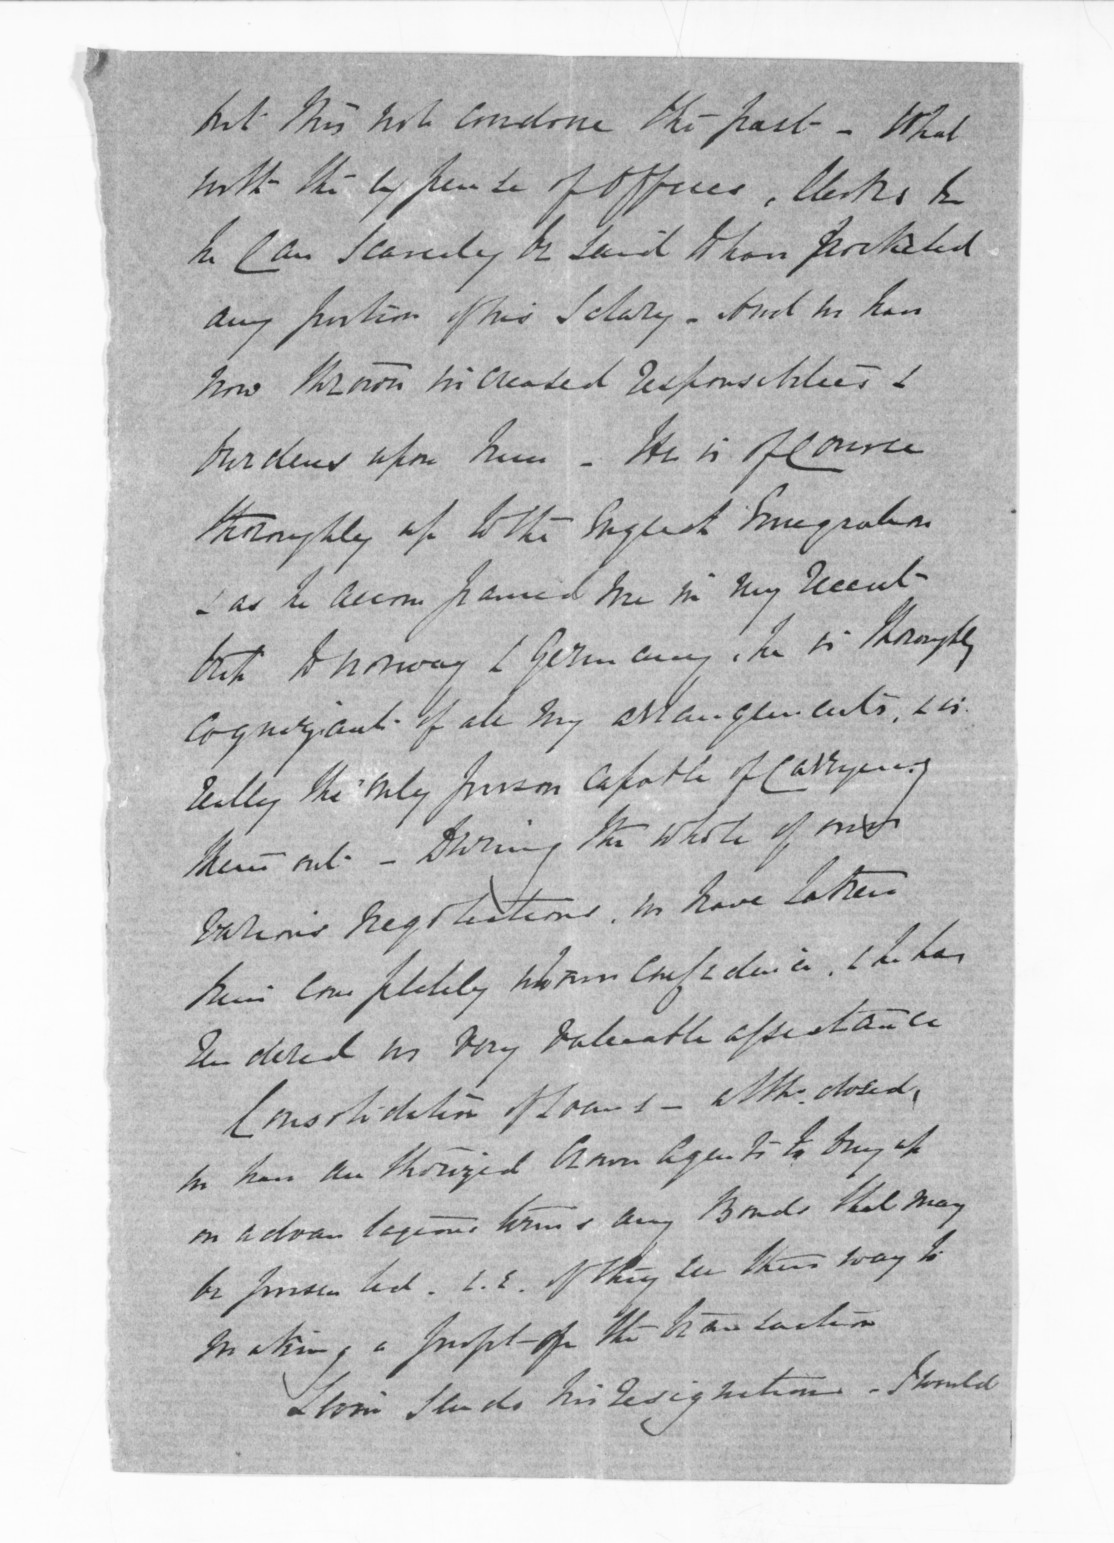 but this not condone the past - What
with the expense of Offices, Clerks &c
he Can scarcely be said to have pocketed
any portion of his Salary - And we have
now thrown increased responsibilities &
burdens upon him - He is of Course
thoroughly up to the English Emigration
& as he accompanied me in my recent
trip to Norway & Germany, he is thoroughly
cognizant of all my arrangements, & is
really the only person capable of Carrying
them out - During the whole of our
various negotiations, we have taken
him completely into our confidence, & he has
rendered us very valuable assistance
Consolidation of Loans - altho. closed,
we have authorized Crown Agents to buy up
on advantageous terms any Bonds that may
be presented. i.e. if they see their way to
making a profit on the transaction
sends his resignation - I would